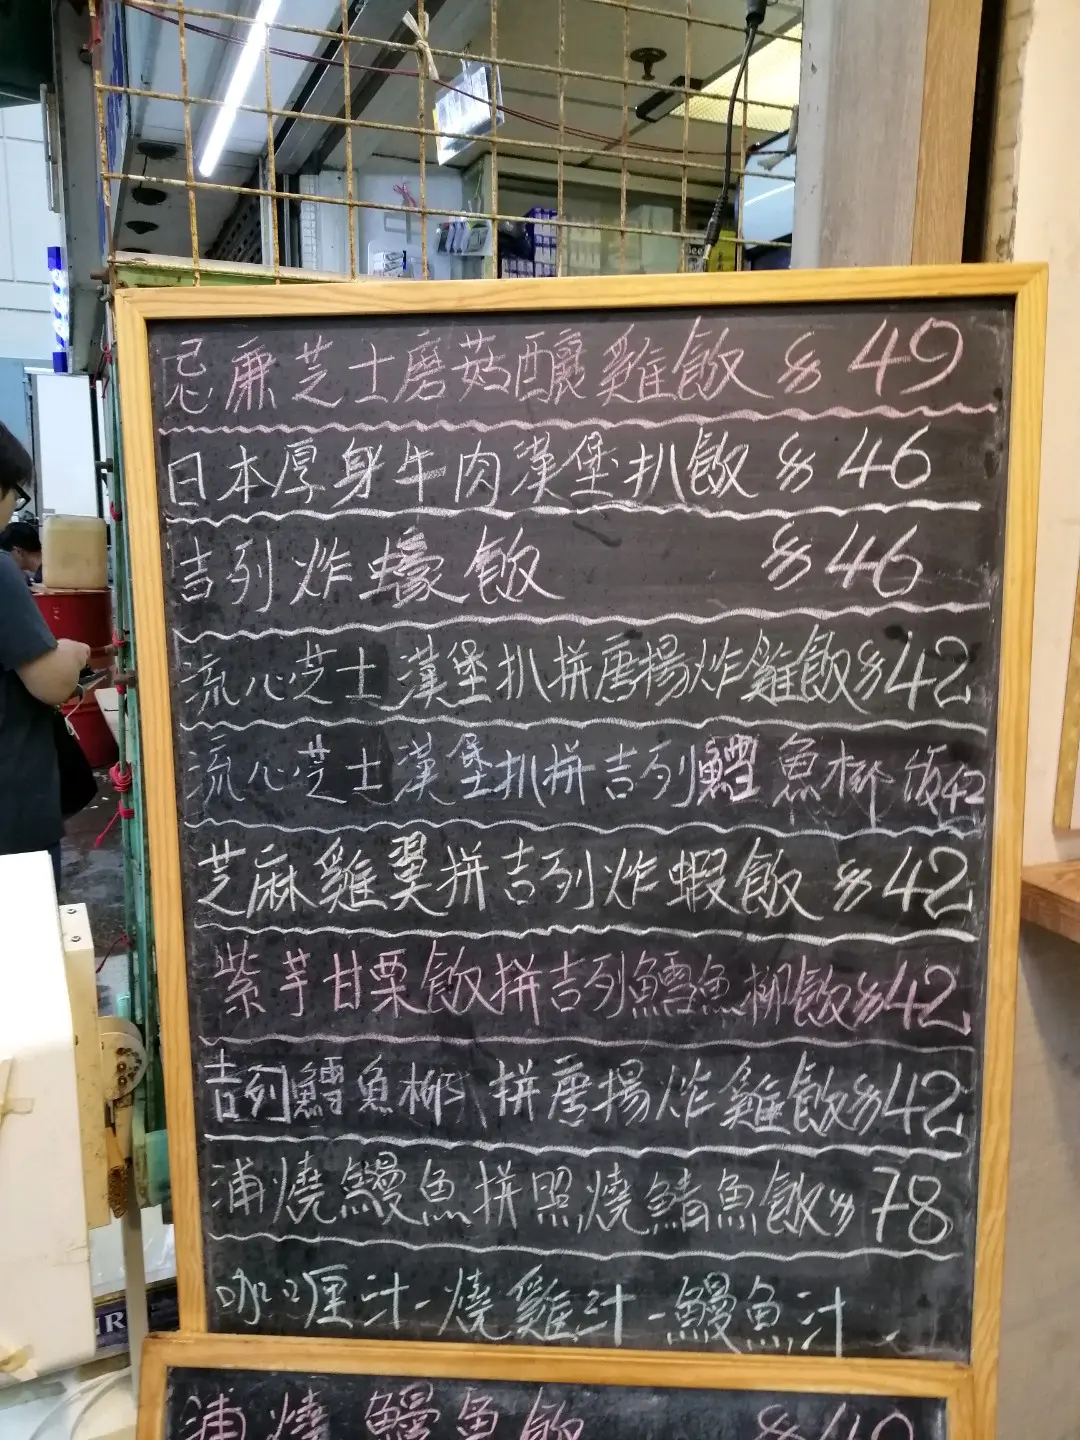 忌廉芝士磨菇釀雞飯 $49
日本厚身牛肉漢堡扒飯 $46
吉列炸蠔飯 $46
流心芝士漢堡扒拼唐揚炸雞飯$42
流心芝士漢堡扒拼吉列鱈魚柳飯42
芝麻雞翼拼吉列炸蝦飯 $42
紫芋甘栗飯拼吉列鱈魚柳飯$42
吉列鱈魚柳 拼唐揚炸雞飯$42
浦燒鰻魚拼照燒鯖魚飯$ 78
咖喱汁-燒雞汁-鰻魚汁
浦燒鰻魚飯